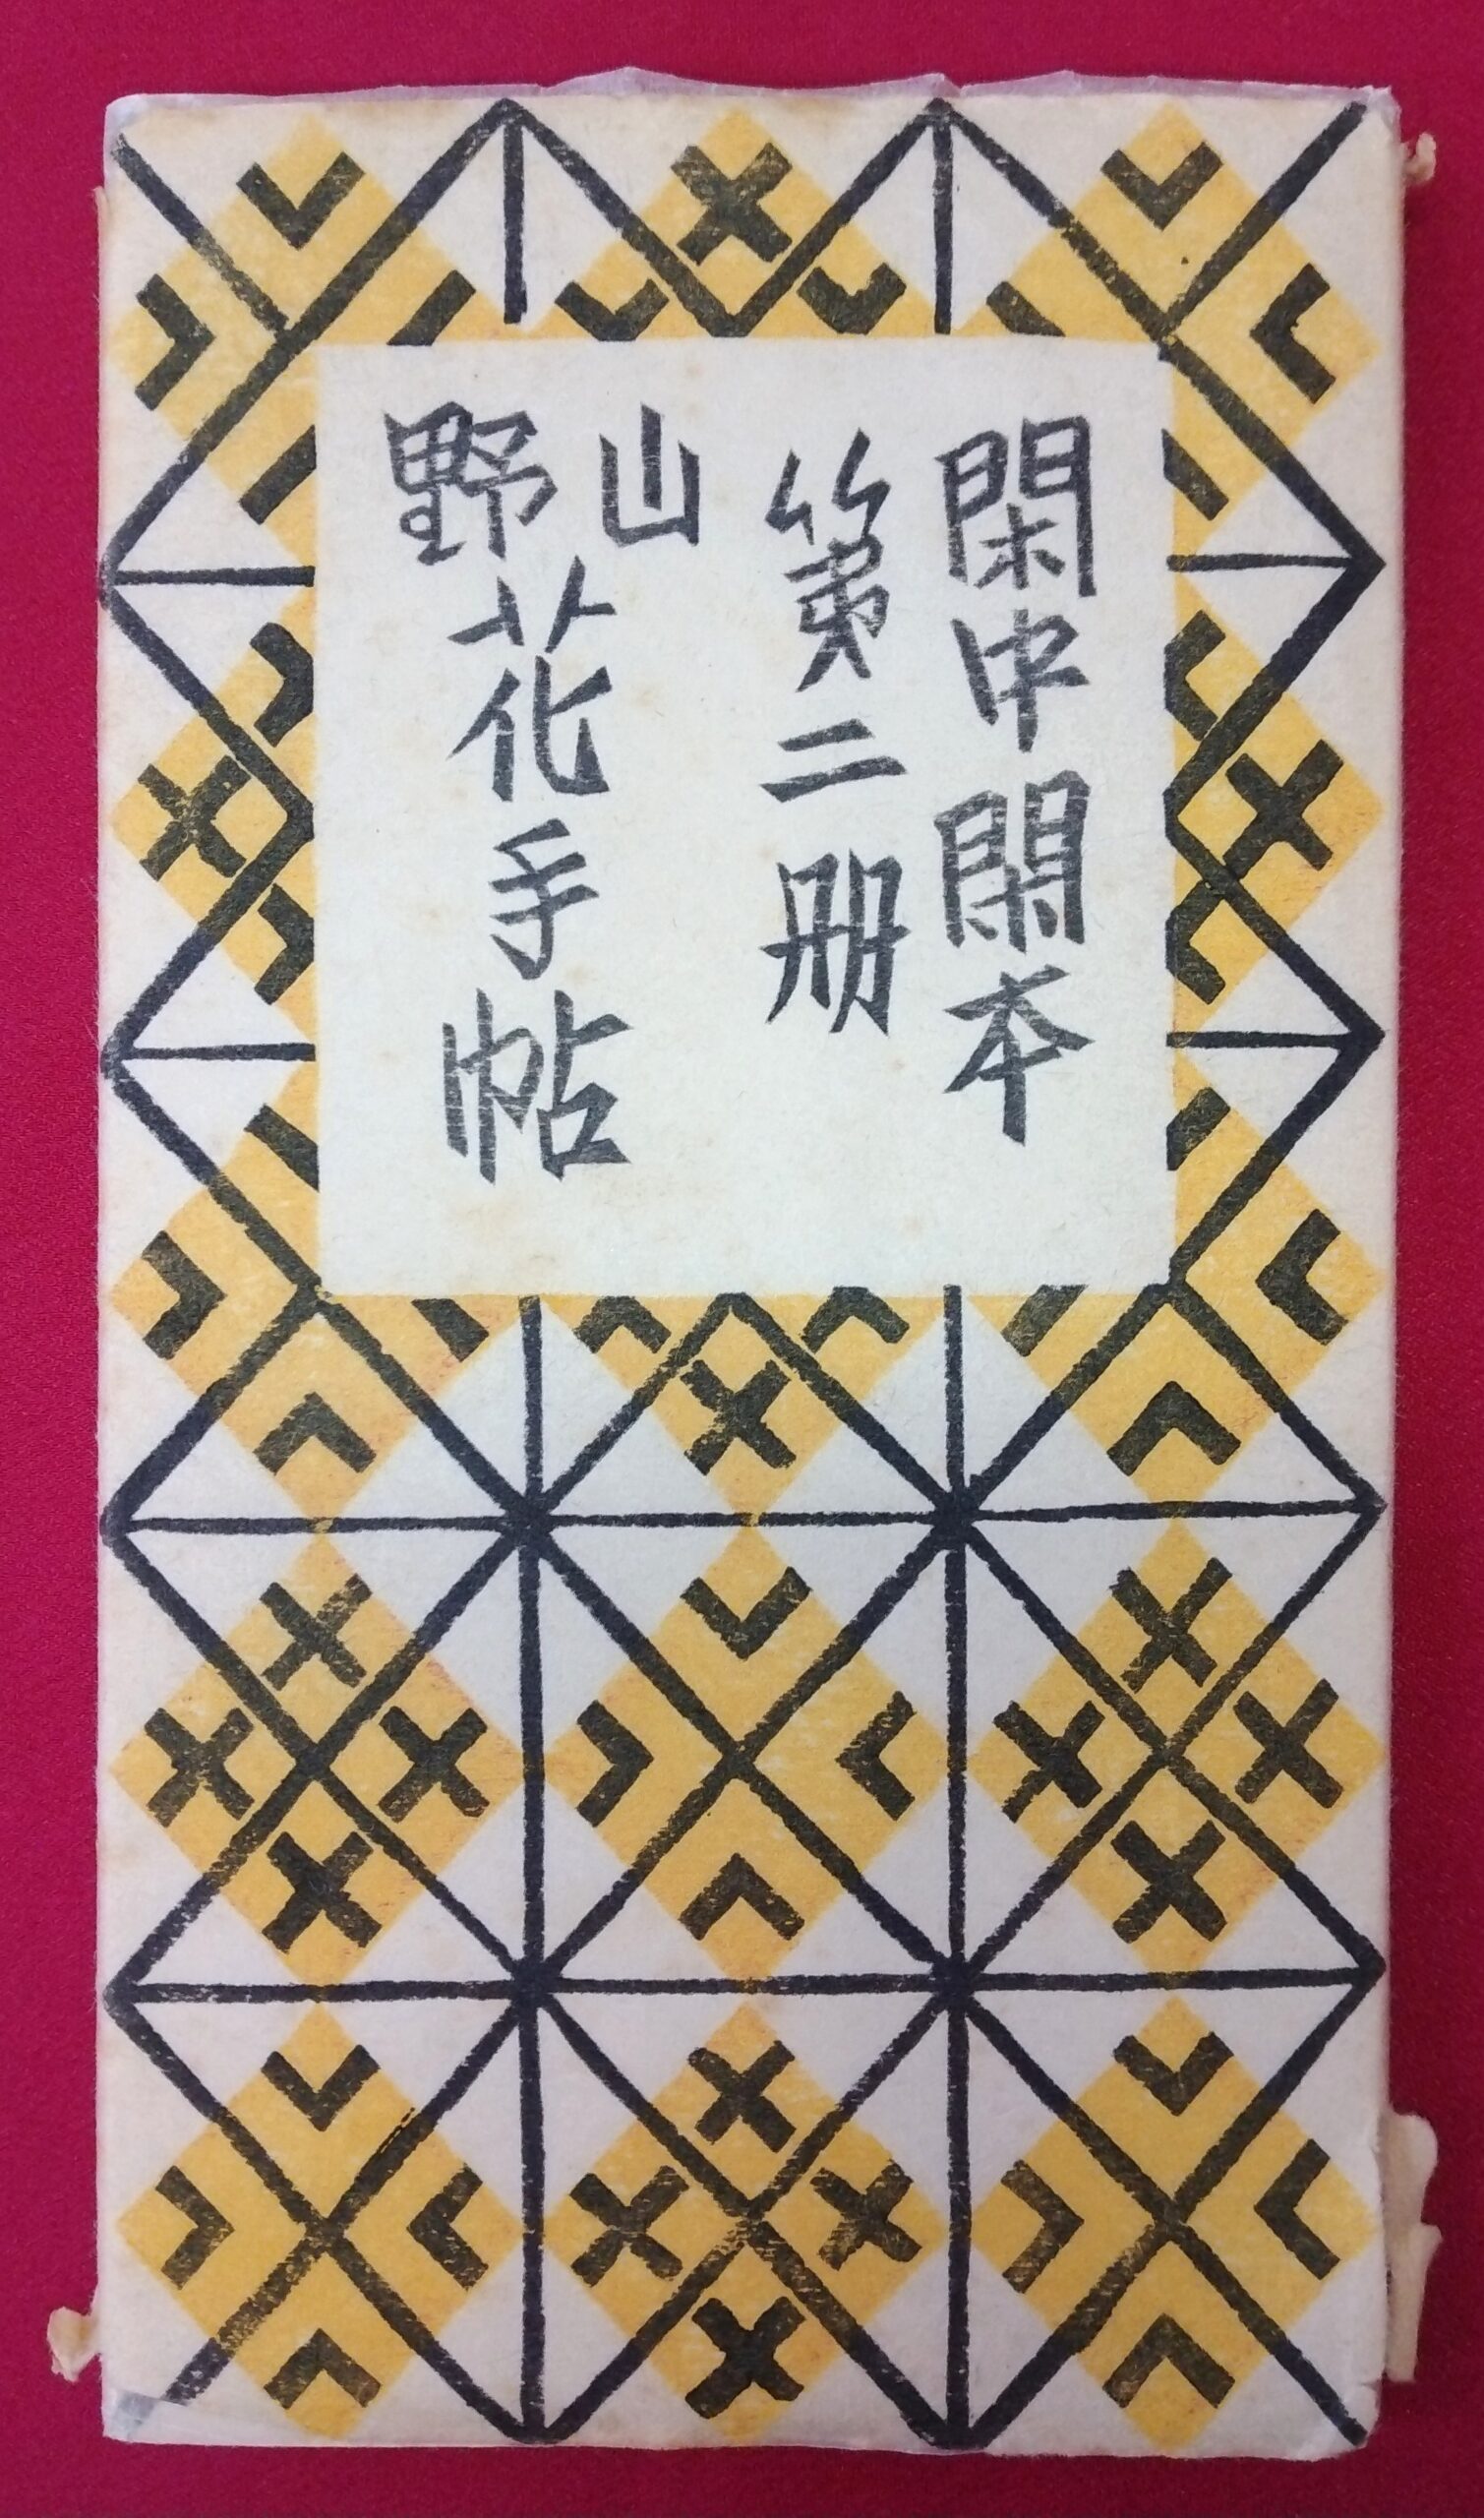 閑中閑本
第二册
山野花手帖